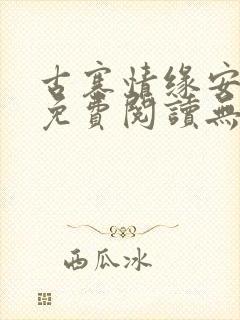 古寨情缘安
免費閱讀無
西瓜冰